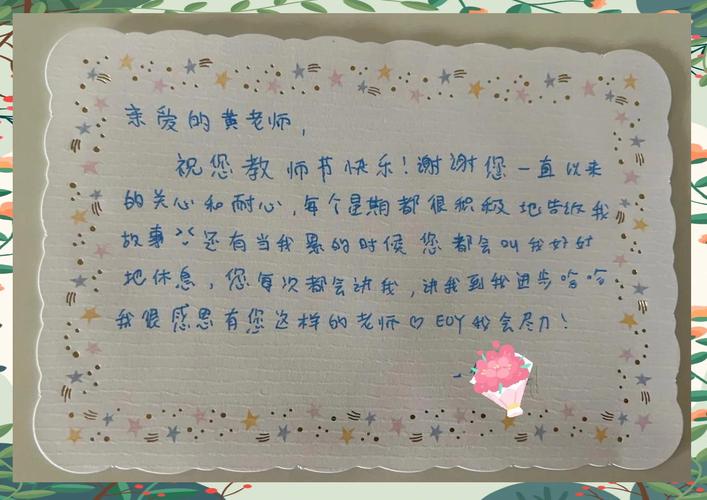 亲爱的黄老师，
祝您教师节快乐！谢谢您一直以来
的关心和耐心，每个星期都很积极地告诉我
故事 还有当我累的时候您都会叫我好好
地休息，您每次都会讲我，讲我到我进步哈哈
我很感恩有您这样的老师♡ EOY我会尽力！